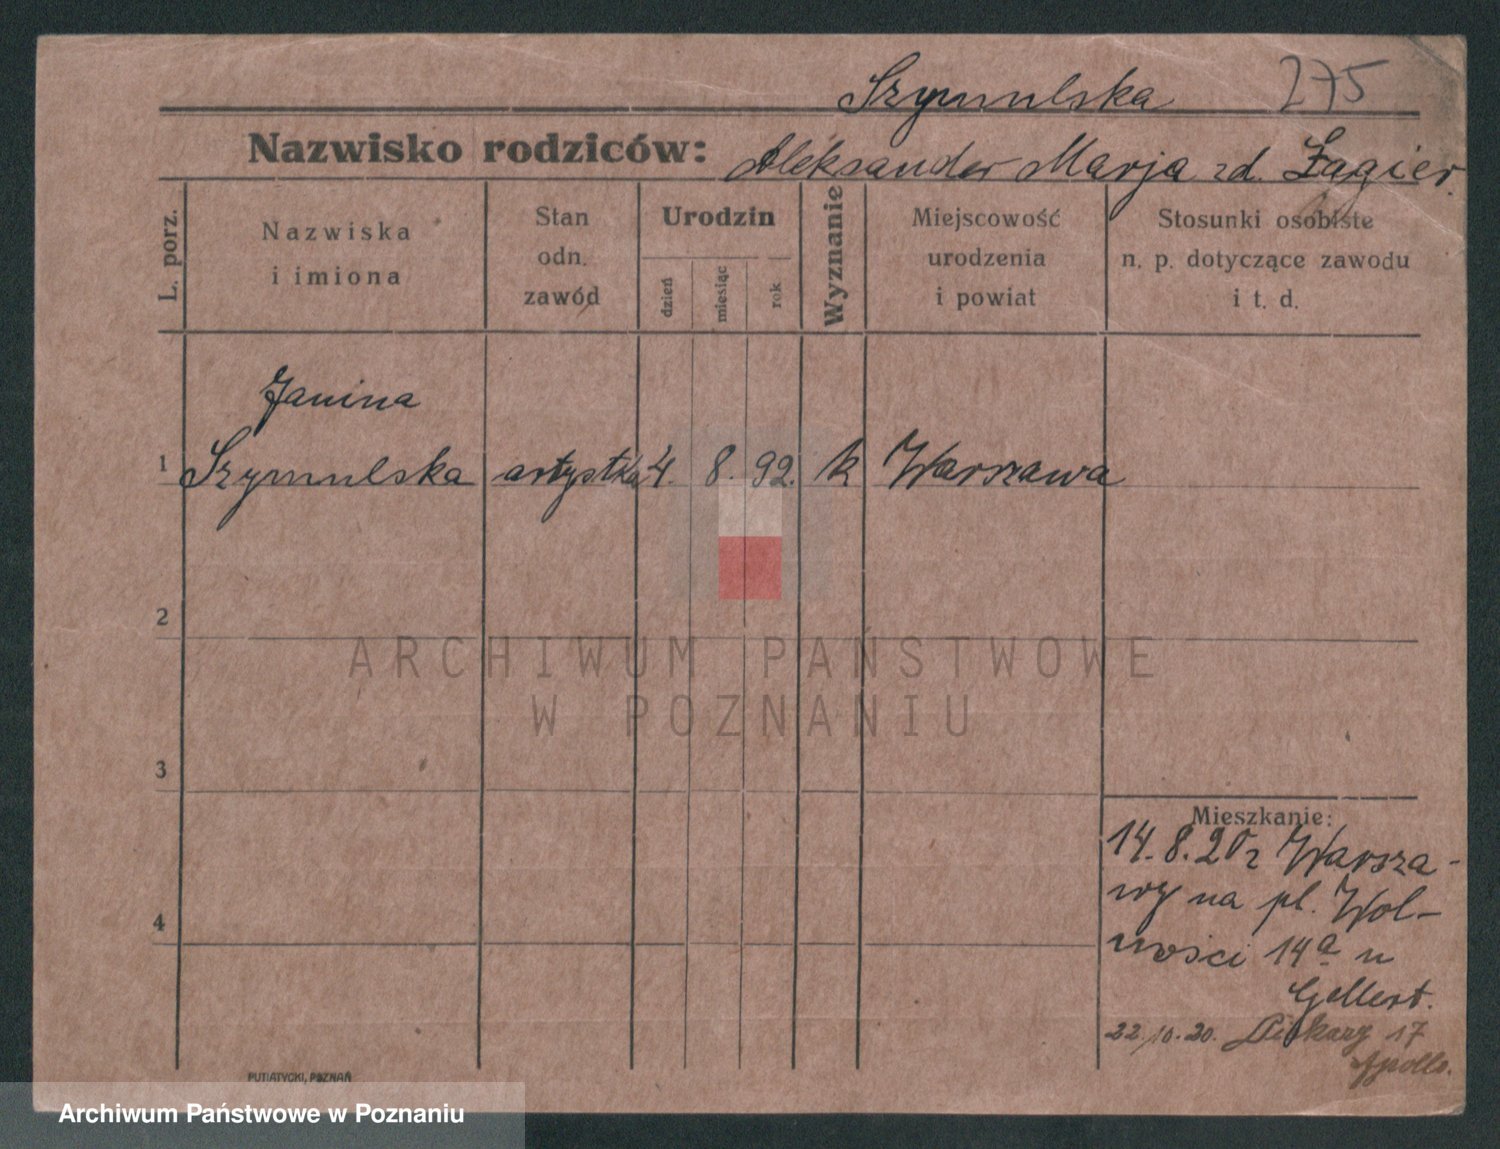 Szymulska 275
Nazwisko rodziców: Aleksander Marja zd. Żagier.
L. porz.
Nazwiska
i imiona
Stan
odn.
zawód
Urodzin
dzień
miesiąc
rok
Wyznanie
Miejscowość
urodzenia
i powiat
Stosunki osobiste
n. p. dotyczące zawodu
i t. d.
Janina
1 Szymulska artystka 4. 8. 92. k Warszawa
2
ARCHIWUM PAŃSTWOWE
W POZNANIU
3
Mieszkanie:
14.8.20 z Warsza-
wy na pl. Wol-
4
ności 14a u
Gellert.
22/10.20. Piekary 17
Apollo.
PUTIATYCKI, POZNAŃ
Archiwum Państwowe w Poznaniu